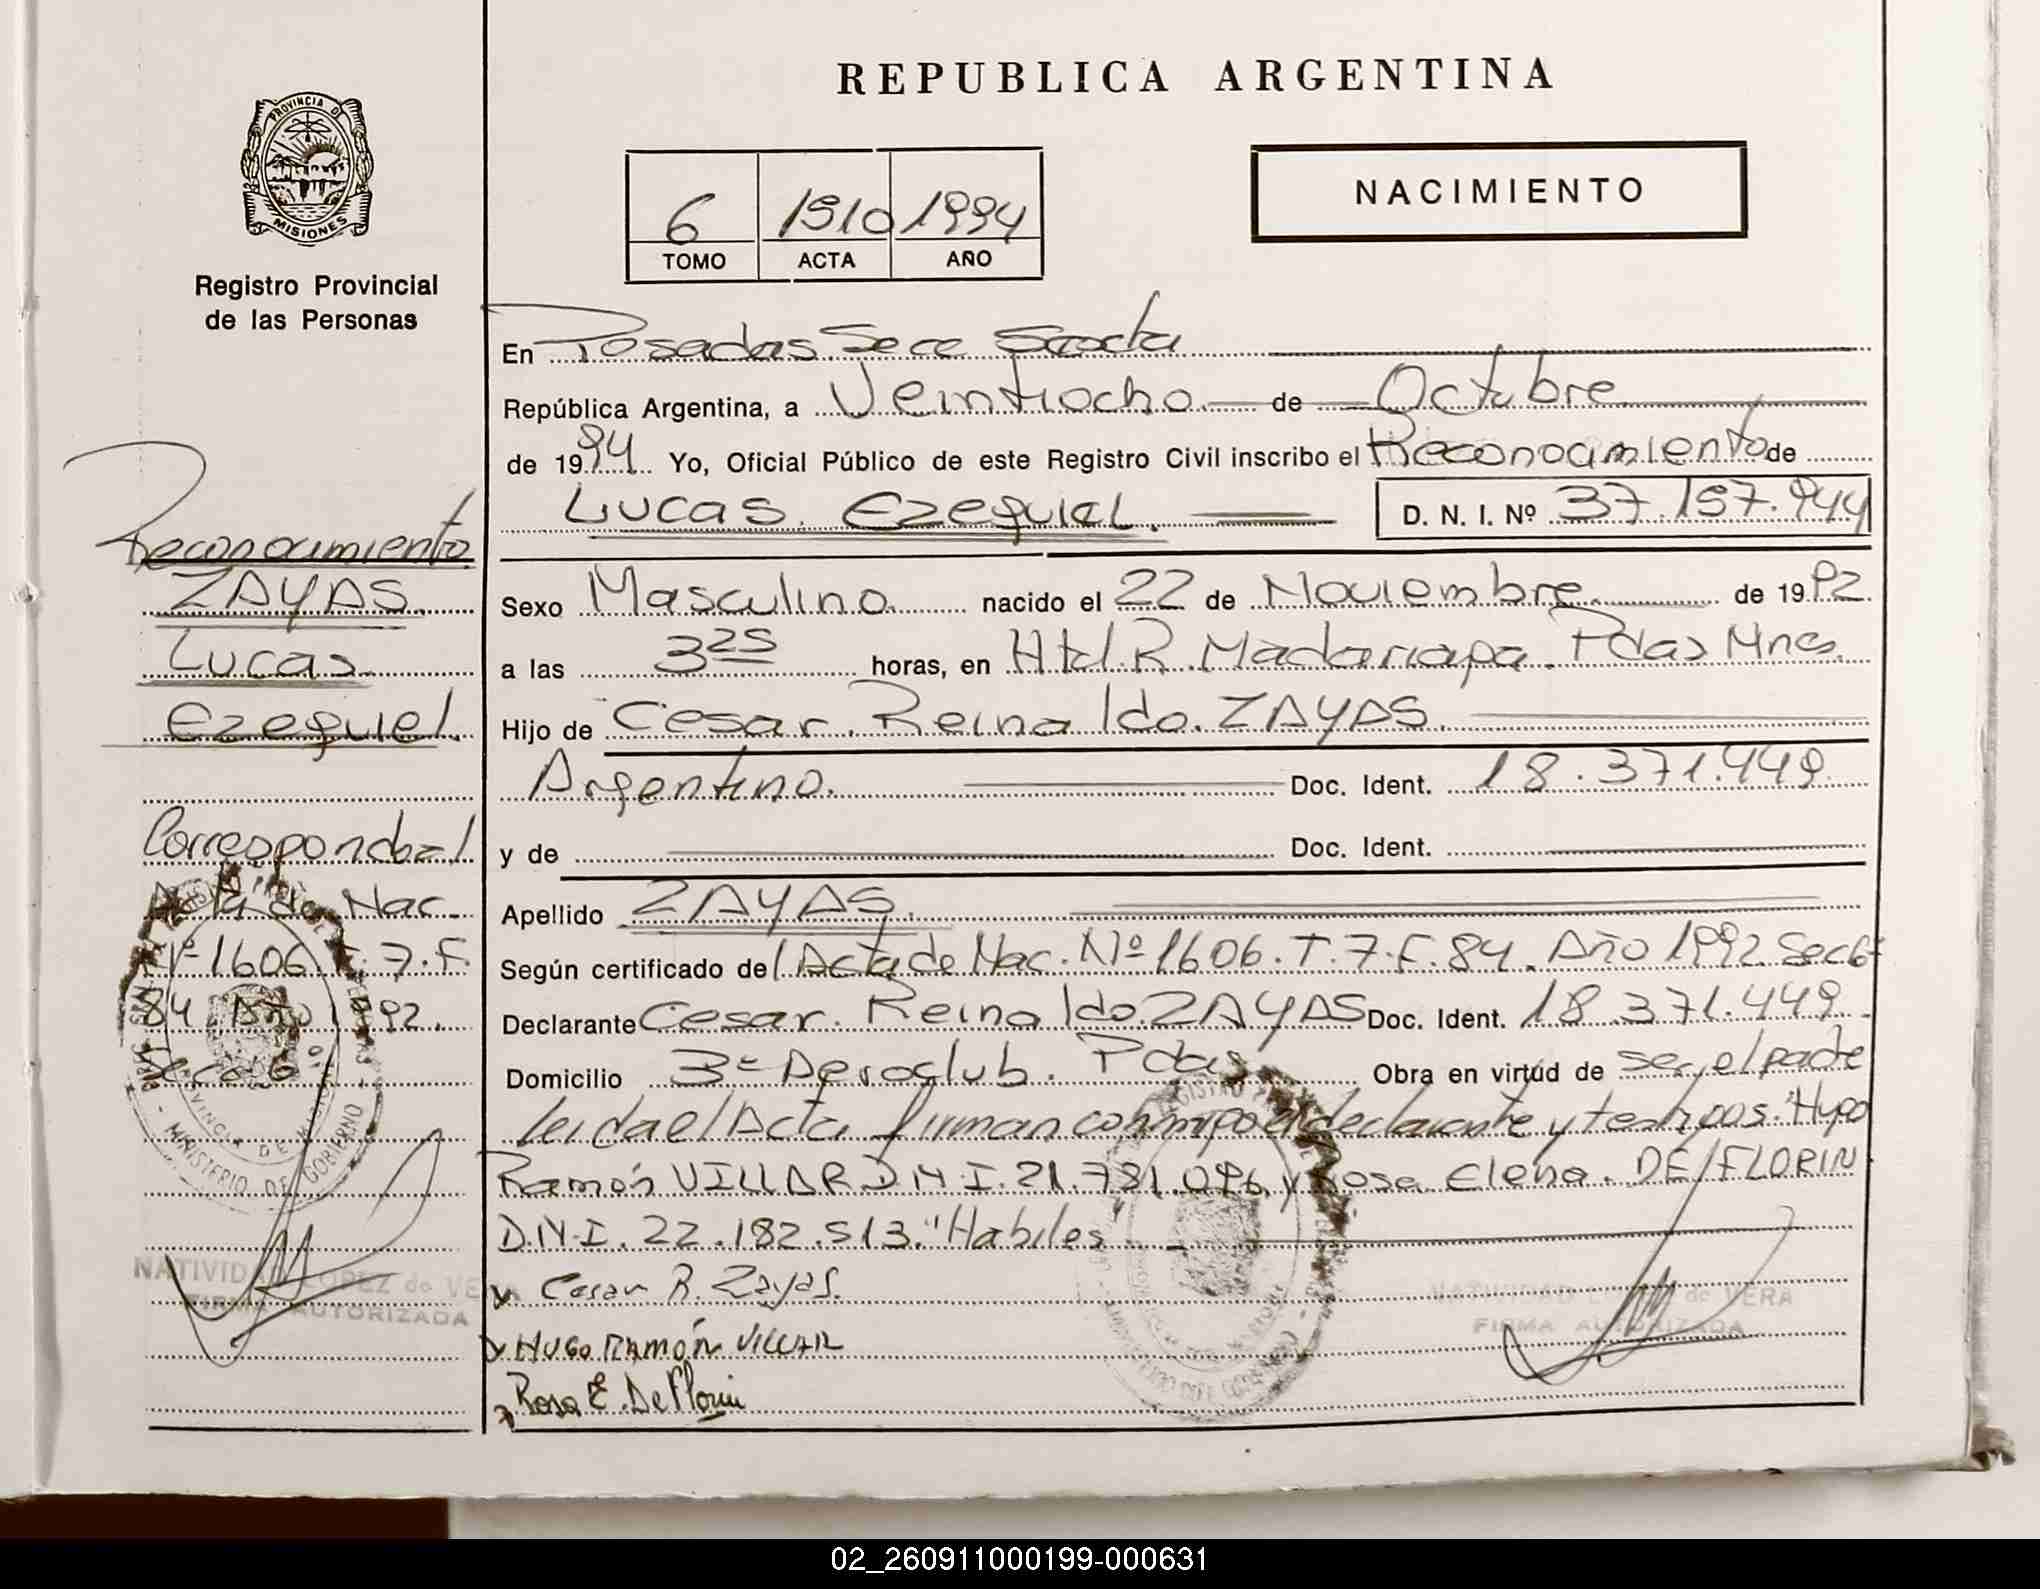 REPUBLICA ARGENTINA
PROVINCIA DE
MISIONES
Registro Provincial
de las Personas
6 1510 1994
TOMO ACTA AÑO
NACIMIENTO
En Posadas Secc Sexta
República Argentina, a Veintiocho de Octubre
de 1994 Yo, Oficial Público de este Registro Civil inscribo el Reconocimiento de
Lucas Ezequiel. D. N. I. Nº 37.157.944
Sexo Masculino nacido el 22 de Noviembre de 1992
a las 3 25 horas, en Htal. R. Madariaga. Pdas Mnes.
Hijo de Cesar Reinaldo ZAYAS.
Argentino. Doc. Ident. 18.371.449
y de Doc. Ident.
Apellido ZAYAS.
Según certificado del Acta de Nac. Nº 1606. T. 7. F. 84. Año 1992 Sec 6ª
Declarante Cesar Reinaldo ZAYAS Doc. Ident. 18.371.449
Domicilio 3ª Aeroclub. Pdas Obra en virtud de ser el padre
Leida el Acta firman conmigo el declarante y testigos: "Hugo
Ramón VILLAR D.N.I. 21.781.096 y Rosa Elena DE FLORIN
D.N.I. 22.182.513. "Habiles
Cesar R. Zayas.
HUGO RAMÓN VILLAR
Rosa E. De Florin
NATIVIDAD LOPEZ de VERA
FIRMA AUTORIZADA
Reconocimiento
ZAYAS
Lucas
Ezequiel.
Corresponde al
Acta de Nac.
Nº 1606 T. 7. F.
84 Año 1992.
Secc 6
MINISTERIO DE GOBIERNO
PROVINCIA DE MISIONES
NATIVIDAD LOPEZ de VERA
FIRMA AUTORIZADA
02_260911000199-000631